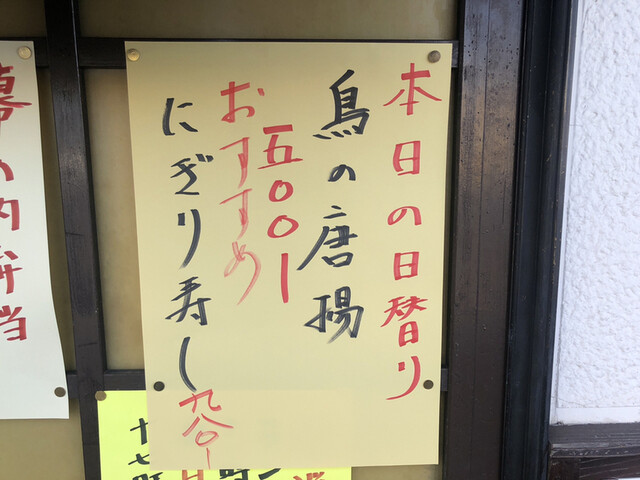 本日の日替り
鳥の唐揚
五〇〇ー
おすすめ
にぎり寿し九八〇ー
幕の内弁当